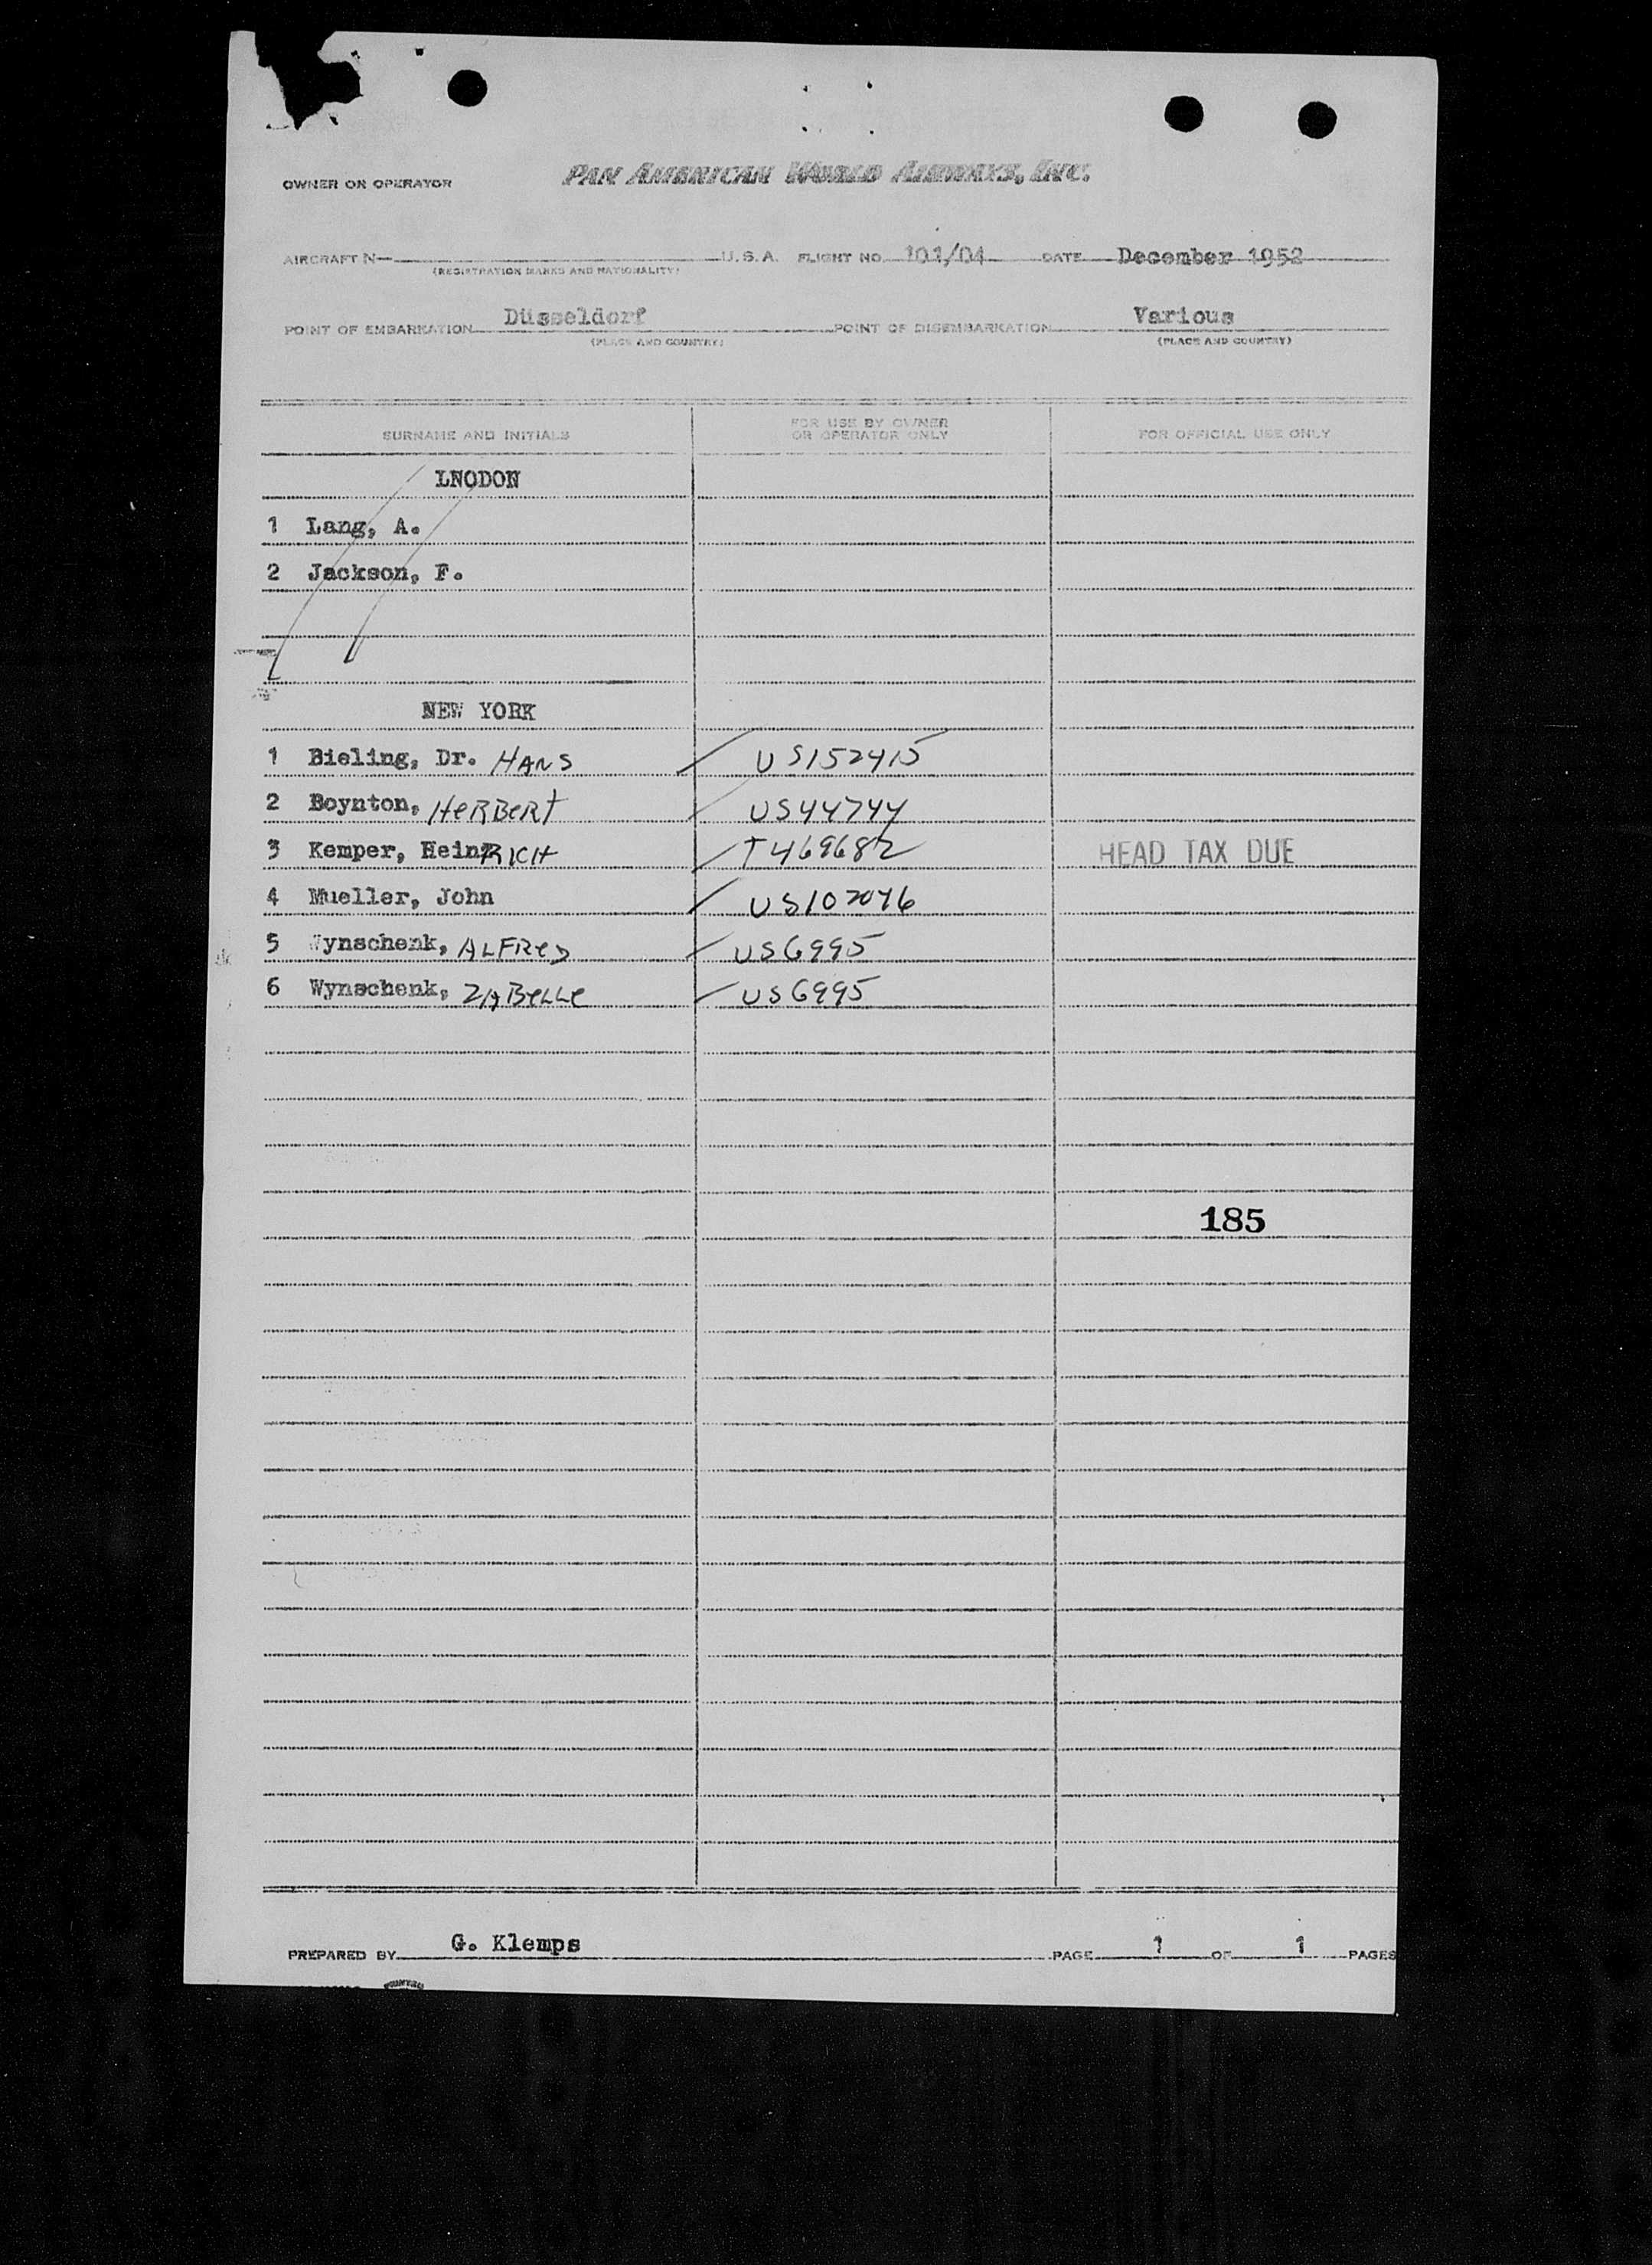 OWNER OR OPERATOR PAN AMERICAN WORLD AIRWAYS, INC.
AIRCRAFT N— U. S. A. FLIGHT NO. 101/04 DATE December 1952
(REGISTRATION MARKS AND NATIONALITY)
POINT OF EMBARKATION Düsseldorf POINT OF DISEMBARKATION Various
(PLACE AND COUNTRY) (PLACE AND COUNTRY)
SURNAME AND INITIALS FOR USE BY OWNER OR OPERATOR ONLY FOR OFFICIAL USE ONLY
LNODON
1 Lang, A.
2 Jackson, F.
NEW YORK
1 Bieling, Dr. HANS US152415
2 Boynton, HERBERT US44744
3 Kemper, HeinRICH T469682 HEAD TAX DUE
4 Mueller, John US107046
5 Wynschenk, ALFRED US6995
6 Wynschenk, US6995
185
PREPARED BY G. Klemps PAGE 1 OF 1 PAGES